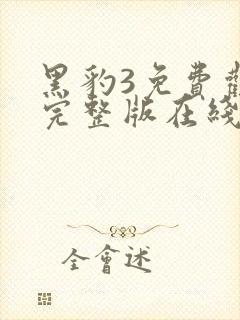 黑豹3免費
完整版在綫
全會述